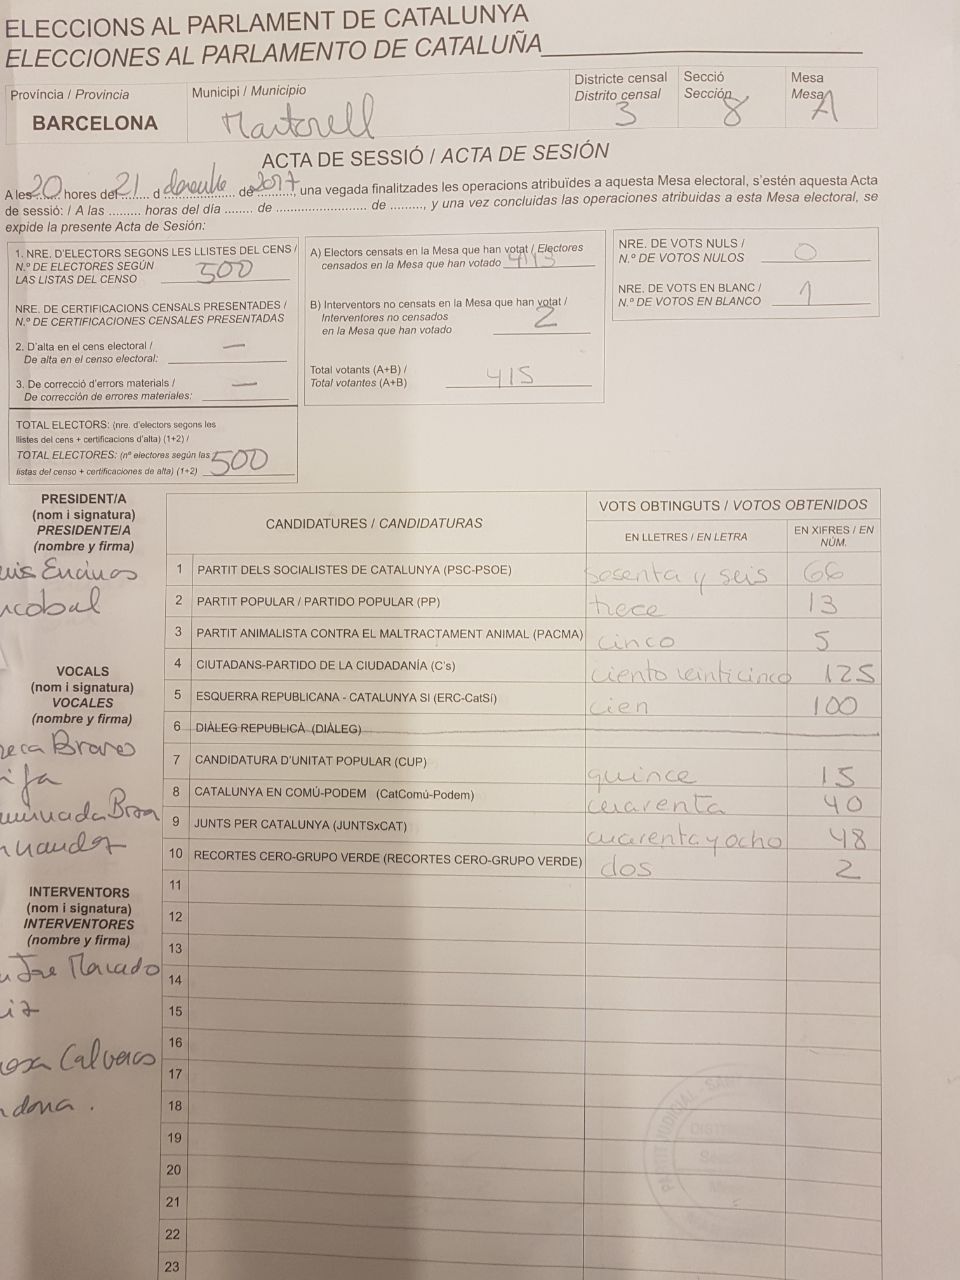 ELECCIONS AL PARLAMENT DE CATALUNYA
ELECCIONES AL PARLAMENTO DE CATALUÑA
Província / Provincia
BARCELONA
Municipi / Municipio
Martorell
Districte censal
Distrito censal
3
Secció
Sección
8
Mesa
Mesa
A
ACTA DE SESSIÓ / ACTA DE SESIÓN
A les 20 hores del 21 d de 2017, una vegada finalitzades les operacions atribuïdes a aquesta Mesa electoral, s'estén aquesta Acta
de sessió: / A las ......... horas del día ........ de .......................... de .........., y una vez concluidas las operaciones atribuidas a esta Mesa electoral, se
expide la presente Acta de Sesión:
1. NRE. D'ELECTORS SEGONS LES LLISTES DEL CENS /
N.º DE ELECTORES SEGÚN
LAS LISTAS DEL CENSO 500
NRE. DE CERTIFICACIONS CENSALS PRESENTADES /
N.º DE CERTIFICACIONES CENSALES PRESENTADAS
2. D'alta en el cens electoral / —
De alta en el censo electoral:
3. De correcció d'errors materials / —
De corrección de errores materiales:
TOTAL ELECTORS: (nre. d'electors segons les
llistes del cens + certificacions d'alta) (1+2) /
TOTAL ELECTORES: (nº electores según las
listas del censo + certificaciones de alta) (1+2) 500
A) Electors censats en la Mesa que han votat / Electores
censados en la Mesa que han votado 413
B) Interventors no censats en la Mesa que han votat /
Interventores no censados
en la Mesa que han votado 2
Total votants (A+B) /
Total votantes (A+B) 415
NRE. DE VOTS NULS /
N.º DE VOTOS NULOS 0
NRE. DE VOTS EN BLANC /
N.º DE VOTOS EN BLANCO 1
PRESIDENT/A
(nom i signatura)
PRESIDENTE/A
(nombre y firma)
Encinas
VOCALS
(nom i signatura)
VOCALES
(nombre y firma)
INTERVENTORS
(nom i signatura)
INTERVENTORES
(nombre y firma)
CANDIDATURES / CANDIDATURAS
VOTS OBTINGUTS / VOTOS OBTENIDOS
EN LLETRES / EN LETRA
EN XIFRES / EN NÚM.
1 PARTIT DELS SOCIALISTES DE CATALUNYA (PSC-PSOE) sesenta y seis 66
2 PARTIT POPULAR / PARTIDO POPULAR (PP) trece 13
3 PARTIT ANIMALISTA CONTRA EL MALTRACTAMENT ANIMAL (PACMA) cinco 5
4 CIUTADANS-PARTIDO DE LA CIUDADANÍA (C's) ciento veinticinco 125
5 ESQUERRA REPUBLICANA - CATALUNYA SI (ERC-CatSí) cien 100
6 DIÀLEG REPUBLICÀ (DIÀLEG)
7 CANDIDATURA D'UNITAT POPULAR (CUP) quince 15
8 CATALUNYA EN COMÚ-PODEM (CatComú-Podem) cuarenta 40
9 JUNTS PER CATALUNYA (JUNTSxCAT) cuarenta y ocho 48
10 RECORTES CERO-GRUPO VERDE (RECORTES CERO-GRUPO VERDE) dos 2
11
12
13
14
15
16
17
18
19
20
21
22
23